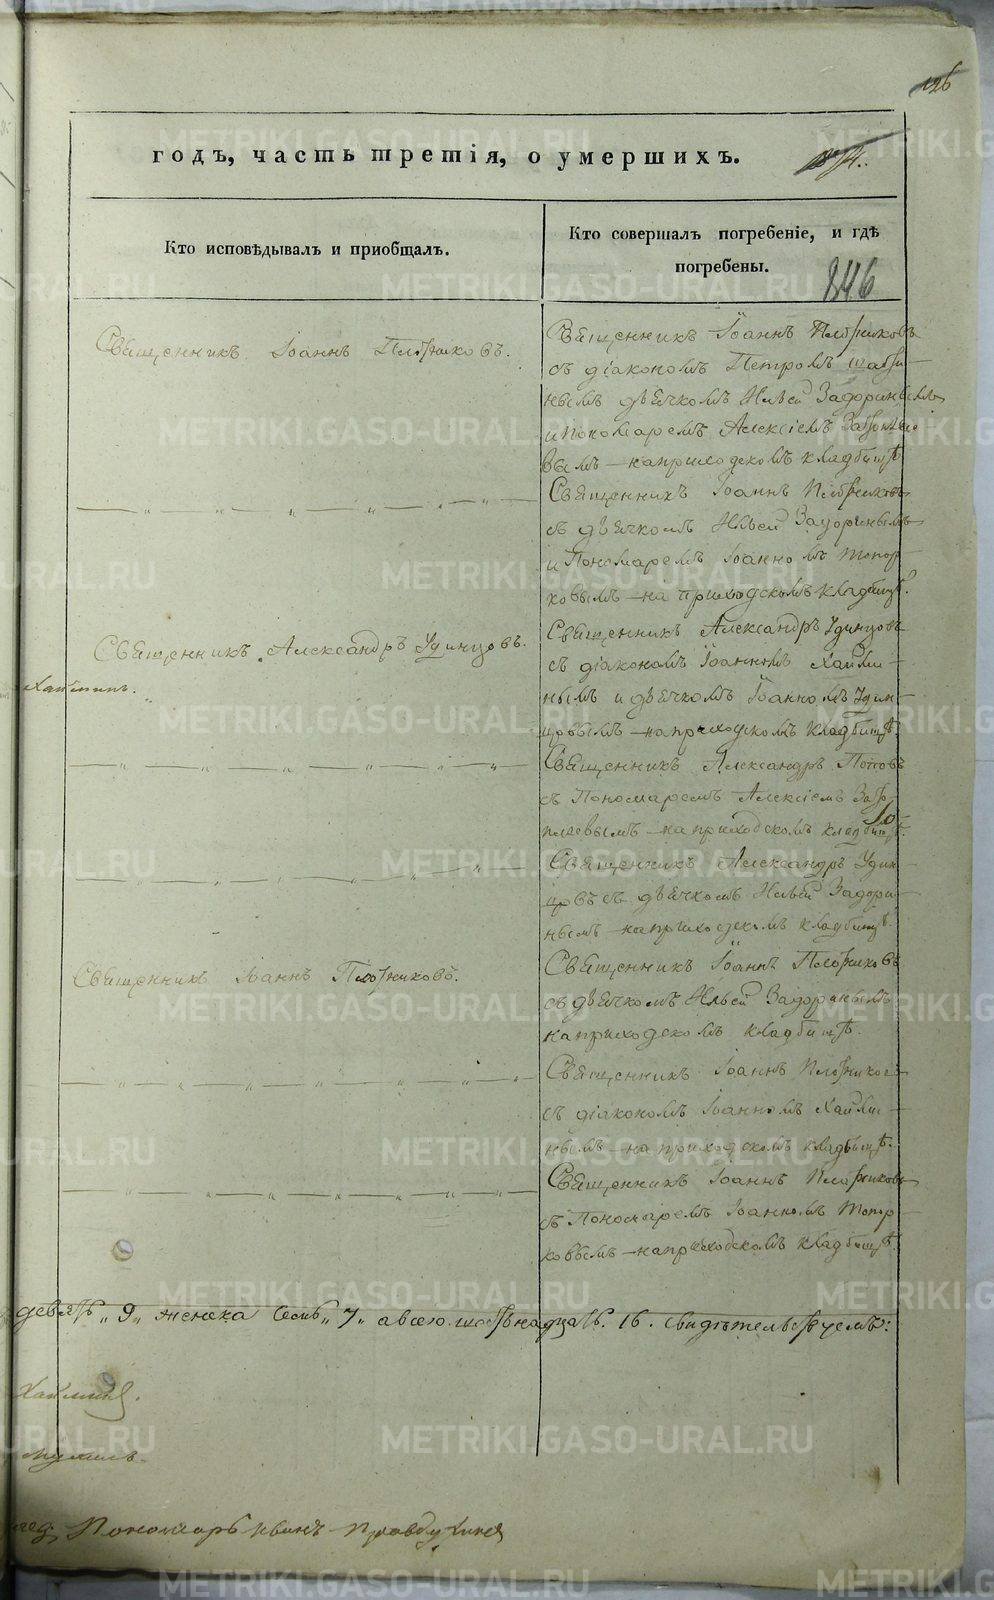 126
годъ, часть третія, о умершихъ.
Кто исповѣдывалъ и пріобщалъ.
Кто совершалъ погребеніе, и гдѣ
погребены.
246
Священникъ Іоаннъ Плотниковъ.
Священникъ Іоаннъ Плотниковъ
съ діакономъ Петромъ
нымъ дьячкомъ Ильей Задоринымъ
и Пономаремъ Алексіемъ
вымъ — на приходскомъ кладбищѣ
Священникъ Іоаннъ Плотниковъ
съ дьячкомъ Ильей Задоринымъ
и Пономаремъ Іоанномъ Топор
ковымъ — на приходскомъ кладбищѣ.
Священникъ Александръ Удинцовъ.
Священникъ Александръ Удинцовъ
съ діакономъ Іоанномъ Хайми-
нымъ и дьячкомъ Іоанномъ Удин-
цовымъ — на приходскомъ кладбищѣ.
Священникъ Александръ Поповъ
съ Пономаремъ Алексіемъ
на приходскомъ кладбищѣ.
Священникъ Александръ Удин-
цовъ съ дьячкомъ Ильей Задори-
нымъ — на приходскомъ кладбищѣ.
Священникъ Іоаннъ Плотниковъ.
Священникъ Іоаннъ Плотниковъ
съ дьячкомъ Ильей Задоринымъ
на приходскомъ кладбищѣ.
Священникъ Іоаннъ Плотниковъ
съ діакономъ Іоанномъ Хайми-
нымъ — на приходскомъ кладбищѣ.
Священникъ Іоаннъ Плотниковъ
съ Пономаремъ Іоанномъ Топор
ковымъ — на приходскомъ кладбищѣ.
девять „9„ женска семь „7„ а всего шестьнадцать. 16. свидѣтельствуемъ:
Пономарь Иванъ
METRIKI.GASO-URAL.RU